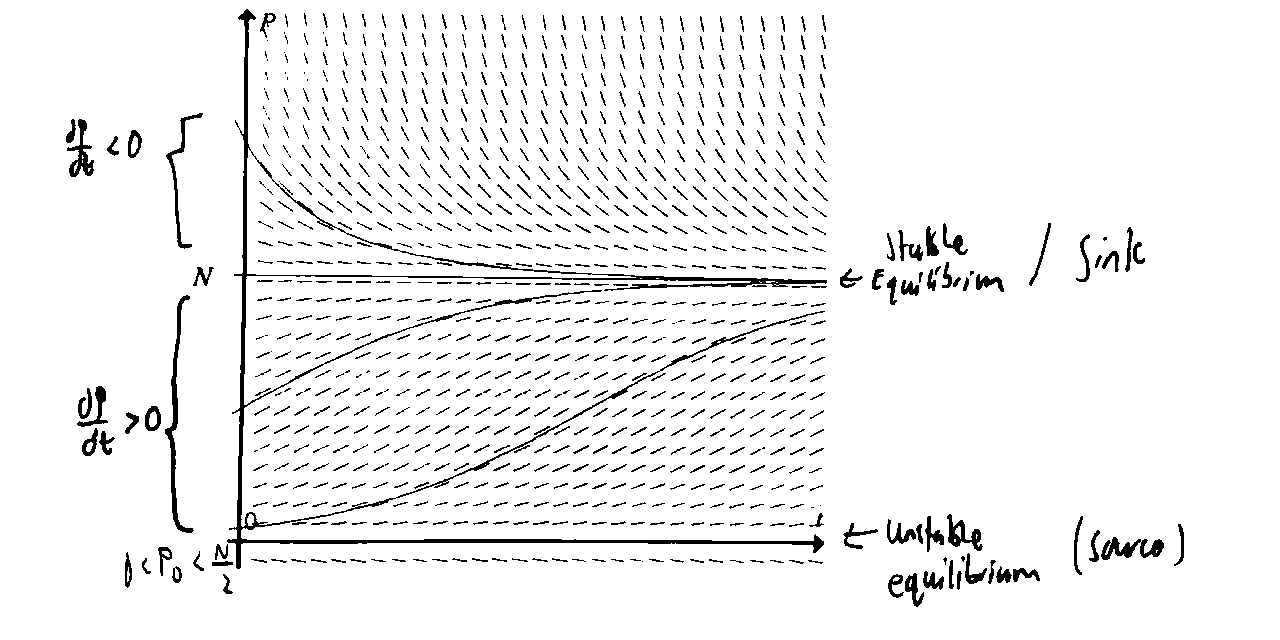 P
dP/dt < 0
N
Stable
Equilibrium / Sink
dP/dt > 0
0
t
0 < P₀ < N/2
← Unstable
equilibrium (source)